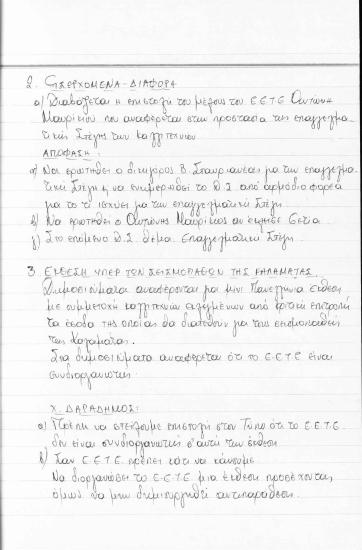 2. ΕΙΣΕΡΧΟΜΕΝΑ - ΔΙΑΦΟΡΑ
α) Διαβάζεται η επιστολή του μέλους του Ε.Ε.Τ.Ε Αντώνη
Μαυρικίου που αναφέρεται στην προστασία της επαγγελμα-
τικής Στέγης των καλλιτεχνών
ΑΠΟΦΑΣΗ:
α) Να ερωτηθεί ο δικηγόρος Β. για την επαγγελμα-
τική Στέγη & να ενημερωθεί το Δ.Σ από αρμόδιο φορέα
για το τι ισχύει για την επαγγελματική Στέγη.
β) Να ερωτηθεί ο Αντώνης Μαυρίκιος αν
γ) Στο επόμενο Δ.Σ θέμα: Επαγγελματική Στέγη.
3. ΕΚΘΕΣΗ ΥΠΕΡ ΤΩΝ ΣΕΙΣΜΟΠΑΘΩΝ ΤΗΣ ΚΑΛΑΜΑΤΑΣ.
Δημοσιεύματα αναφέρονται για μιαν Πανελλήνια έκθεση
με συμμετοχή καλλιτεχνών εκλεγμένων από κριτική επιτροπή
τα έσοδα της οποίας θα διατεθούν για τους σεισμοπαθείς
της Καλαμάτας.
Στα δημοσιεύματα αναφέρεται ότι το Ε.Ε.Τ.Ε είναι
συνδιοργανωτής.
Χ. ΔΑΡΑΔΗΜΟΣ:
α) Πρέπει να στείλουμε επιστολή στον Τύπο ότι το Ε.Ε.Τ.Ε.
δεν είναι συνδιοργανωτής σ' αυτή την έκθεση
β) Σαν Ε.Ε.Τ.Ε πρέπει κάτι να κάνουμε.
Να διοργανώσει το Ε.Ε.Τ.Ε μια έκθεση προσέχοντας
όμως να μην δημιουργηθεί αντιπαράθεση.